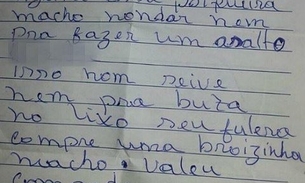 macho nondar nem
pra fazer um asalto
isso nom seive
nem pra buta
no lixo seu fulera
compre uma broizinha
macho. valeu